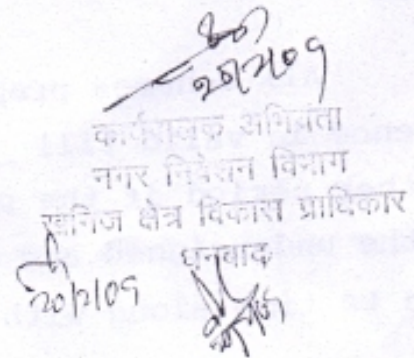 20/2/09
कार्यपालक अभियंता
नगर निवेशन विभाग
खनिज क्षेत्र विकास प्राधिकार
धनबाद
20/2/09